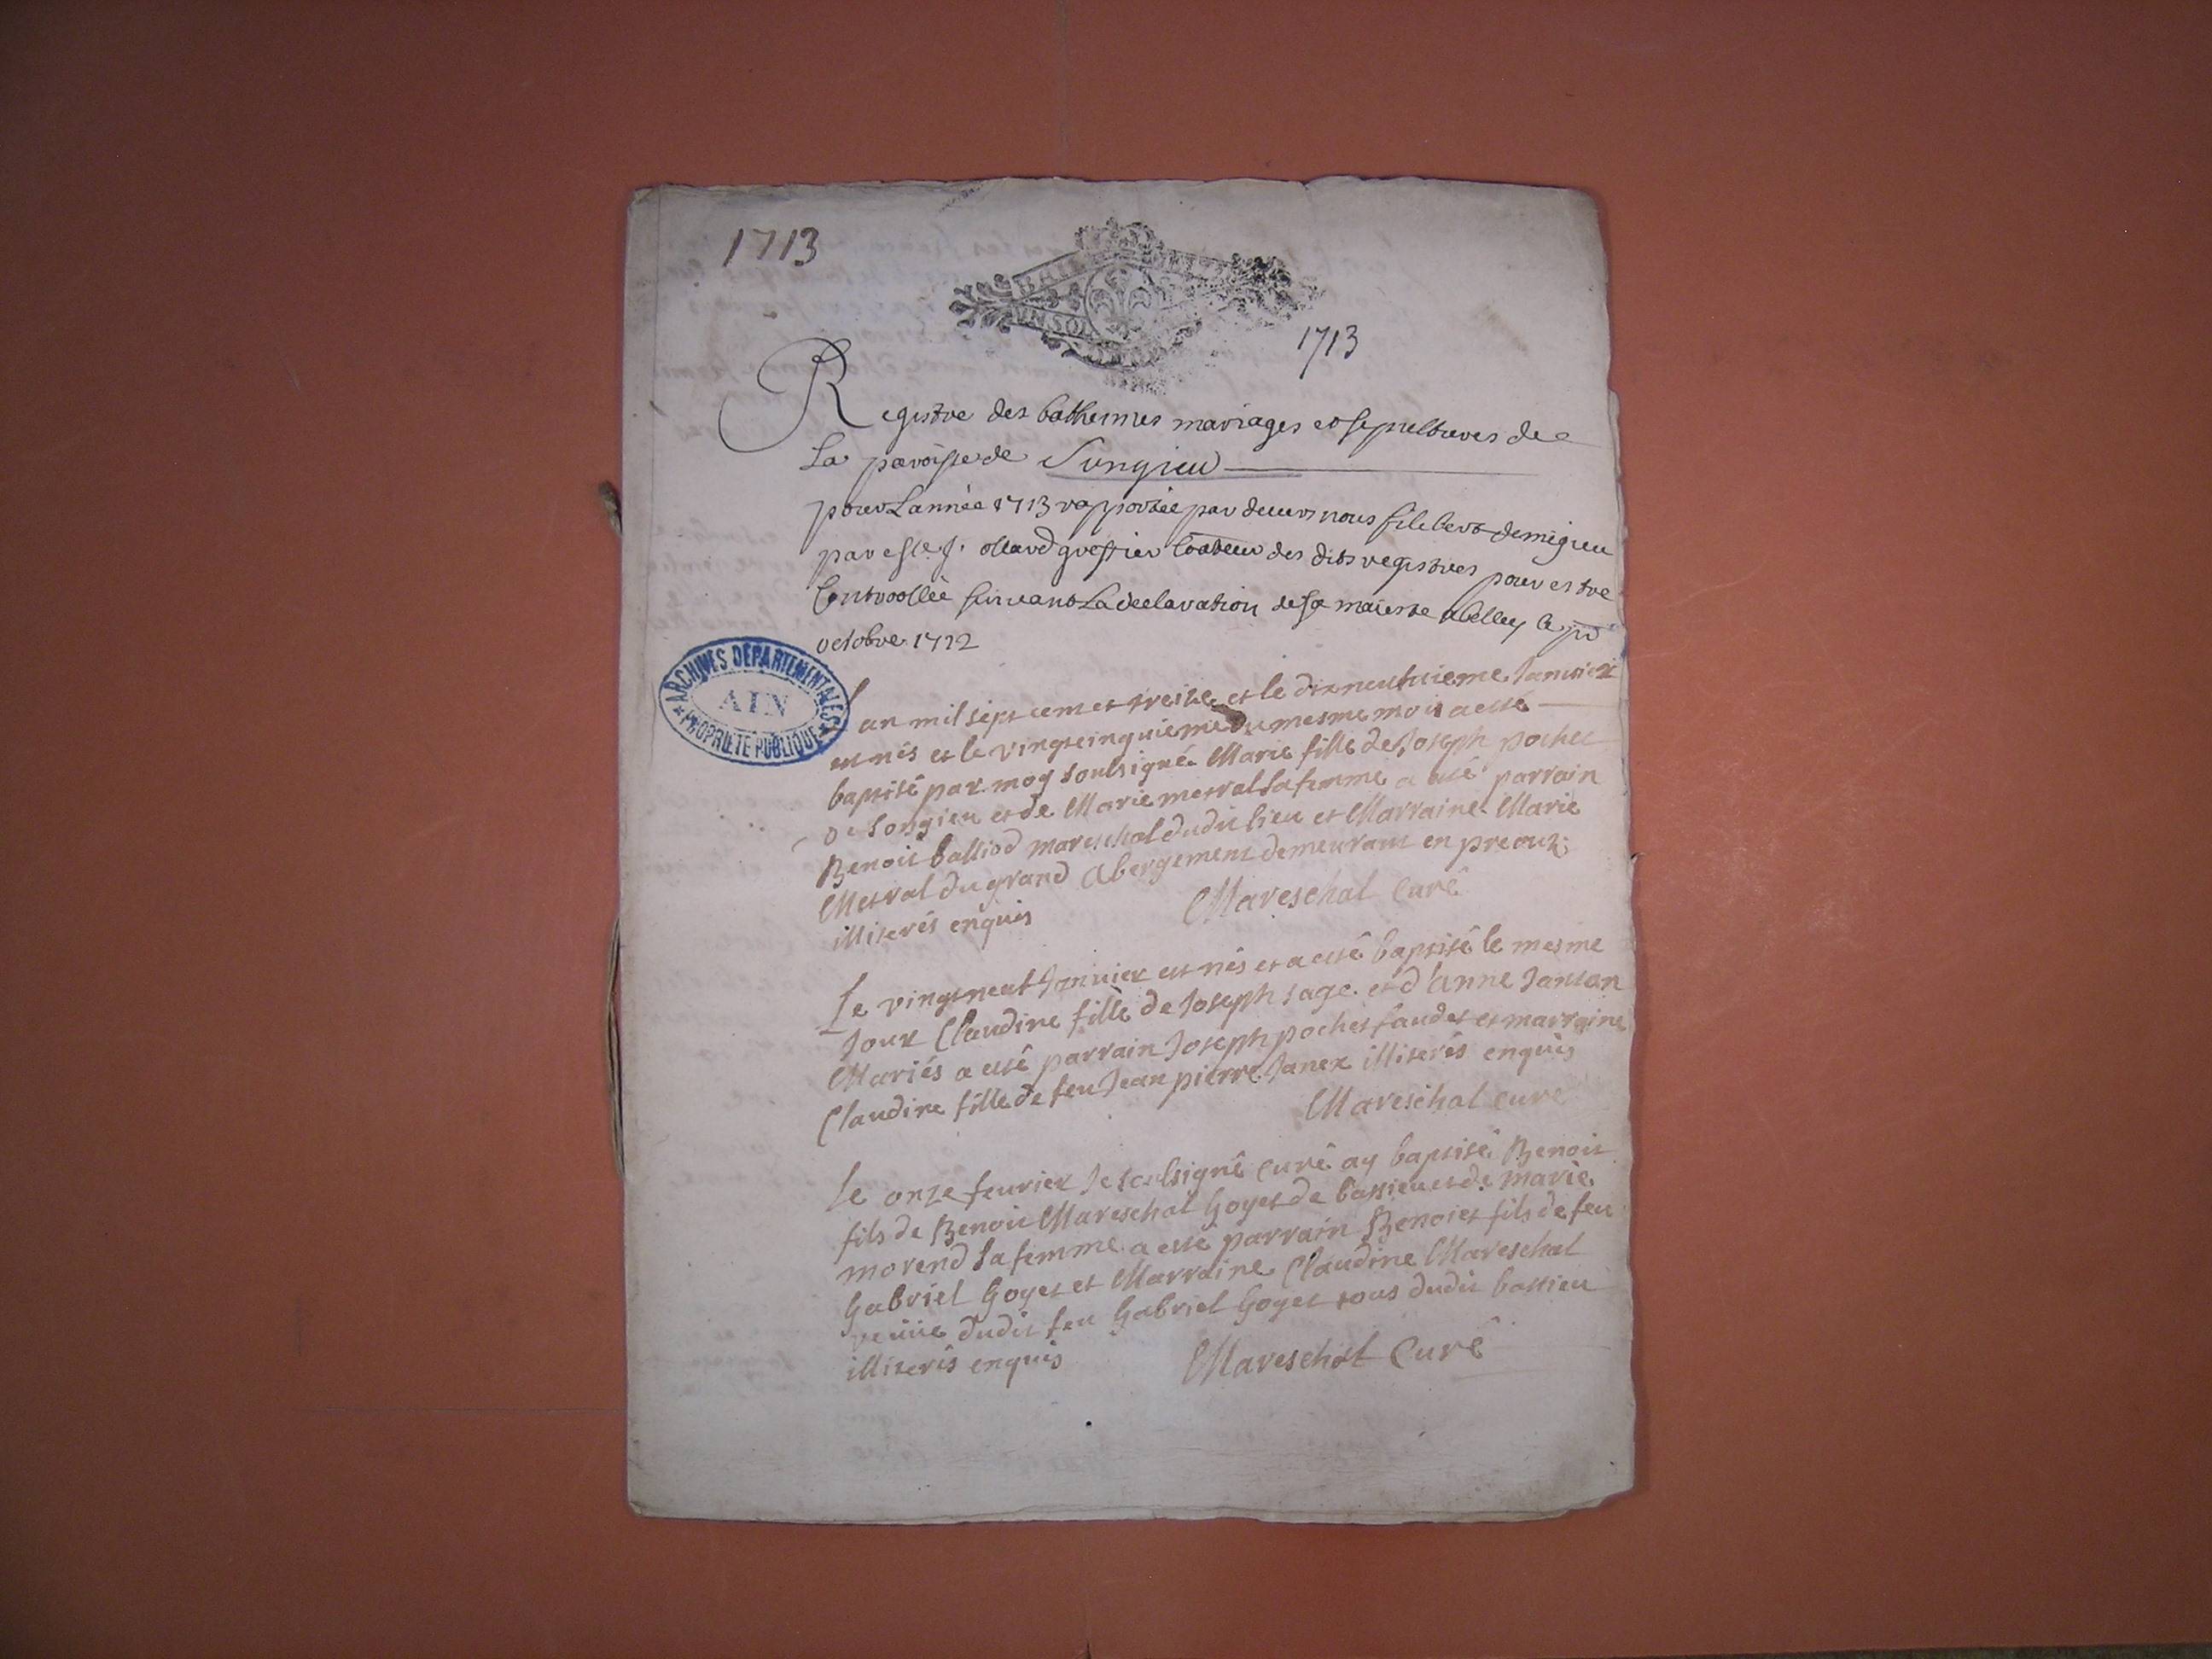 1713
UN SOL
1713
Registre des bathemes mariages et sepultures de
La paroisse de Songieu
pour L'année 1713 rapportée par devers nous filebert demigieu
par esle J. ollard greffier des dits registres pour estre
Controollée suivant La declaration de sa maieste a belley le pr
octobre 1712
ARCHIVES DEPARTEMENTALES
AIN
PROPRIETE PUBLIQUE
L an mil sept cent et treise et le dixneufuieme Januier
est nés et le vingtcinquieme du mesme mois a esté
baptisé par moy soubsigné Marie fille de Joseph pochet
de songieu et de Marie metral sa femme a esté parrain
Benoit balliod mareschal dudit lieu et Marraine Marie
Metral du grand Abergement demeurant en preoux
illiterés enquis Mareschal Curé
Le vingtneuf Januier est nés et a esté baptisé le mesme
Jour Claudine fille de Joseph sage et d'anne Janton
Mariés a esté parrain Joseph pochet faudet et marraine
Claudine fille de feu Jean pierre Janex illiterés enquis
Mareschal curé
Le onze feurier Je soubsigné Curé ay baptisé Benoit
fils de Benoit Mareschal Goyet de bassieu et de marie
morend sa femme a esté parrain Benoist fils de feu
Gabriel Goyet et Marraine Claudine Mareschal
veuue dudit feu Gabriel Goyet tous dudit bassieu
illiterés enquis Mareschal Curé